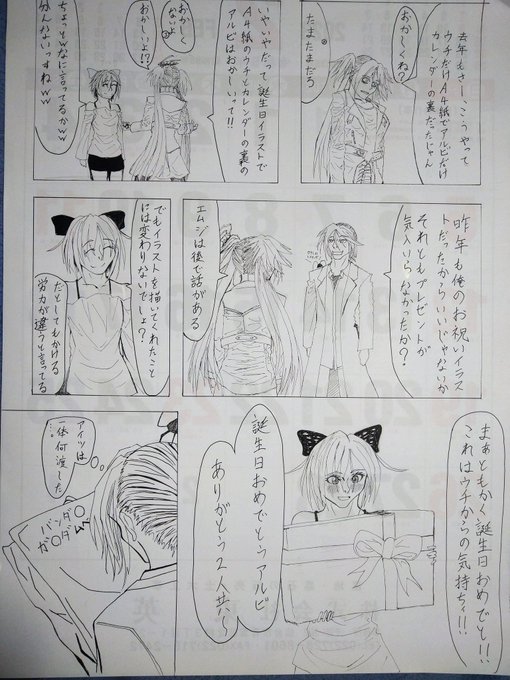 去年もさー、こうやって
ウチだけA4紙でアルビだけ
カレンダーの裏だったじゃん
おかしくね?
たまたまだろ
いやいやだって誕生日イラストで
A4紙のウチとカレンダーの裏の
アルビはおかしいって!!
おかしく
ないよ
おかしいよ!?
ちょっとw なに言ってるかww
分んないっすねww
昨年も俺のお祝いイラス
トだったからいいじゃないか
それともプレゼントが
気入いらなかったか?
エムジは後で話がある
でもイラストを描いてくれたこと
には変わりないでしょ?
だとしてもかける
労力が違うと言ってる
まぁともかく誕生日おめでと!!
これはウチからの気持ちィ!!
誕生日おめでとうアルビ
ありがとう2人共〜
アイツは
一体何渡した